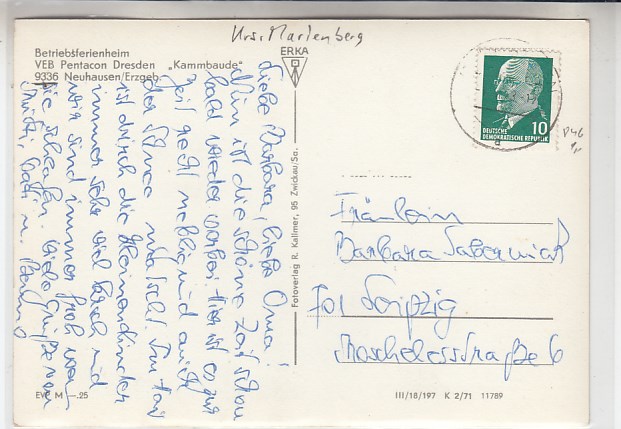 Krs. Marienberg
Betriebsferienheim
VEB Pentacon Dresden „Kammbaude"
9336 Neuhausen/Erzgeb.
ERKA
Liebe Barbara, liebe Oma!
Nun ist die schöne Zeit schon
bald wieder vorbei. Hier ist es zur
Zeit recht neblig und auch
der Schnee matscht. Im
ist durch die Kleinen Kinder
immer sehr viel Krach und
wir sind immer froh wenn
sie schlafen. Viele Grüße von
Fotoverlag R. Kallmer, 95 Zwickau/Sa.
DEUTSCHE
DEMOKRATISCHE REPUBLIK
10
Fräulein
Barbara
701 Leipzig
Moschelesstraße 6
EVP M —.25
III/18/197 K 2/71 11789